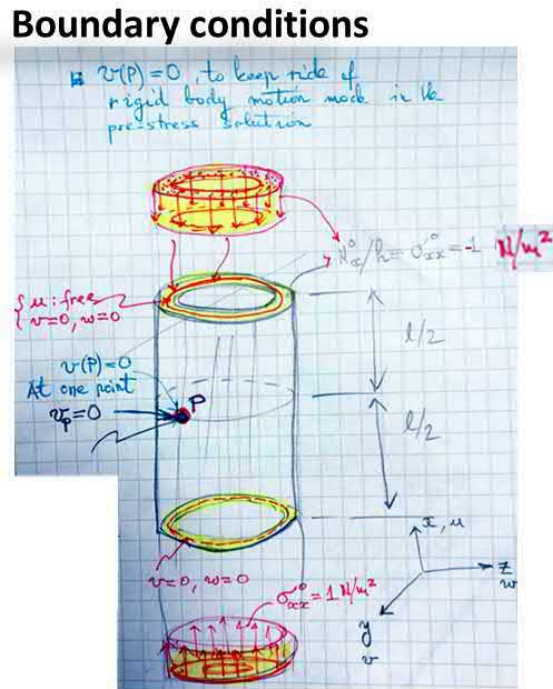 Boundary conditions
v(P) = 0, to keep ride of
rigid body motion mode in the
pre-stress solution
N°x/h = σ°xx = -1 N/m²
{ u: free
{ v=0, w=0
l/2
v(P)=0
At one point
v_P=0
P
l/2
x, u
z
w
y
v
v=0, w=0
σ°xx = 1 N/m²